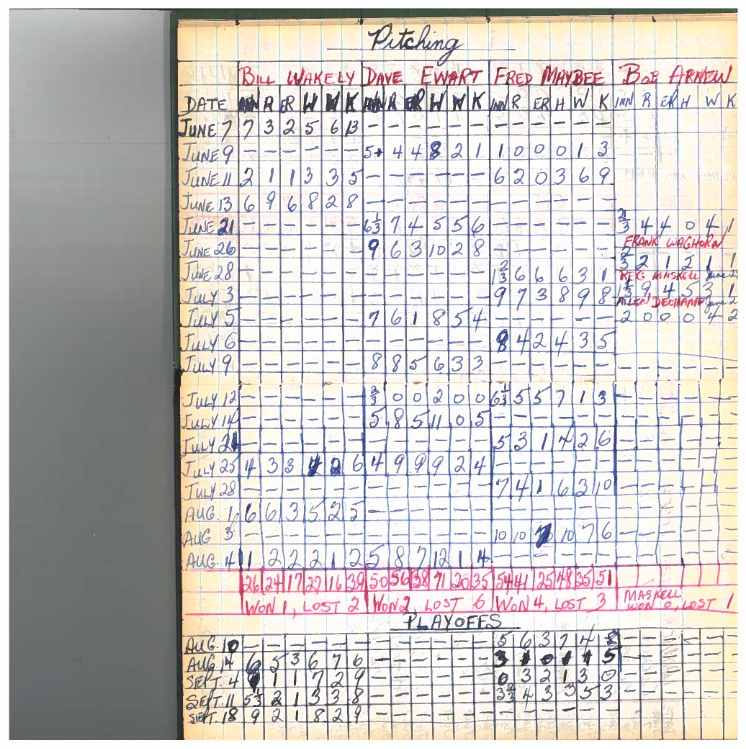 Pitching
BILL WAKELY DAVE EWART FRED MAYBEE BOB ARNEW
DATE INN R ER W K INN R ER W K INN R ER H W K INN R ER H W K
JUNE 7 7 3 2 5 6 13 – – – – – – – – – – – –
JUNE 9 – – – – – – 5+ 4 4 8 2 1 1 0 0 0 1 3
JUNE 11 2 1 1 3 3 5 – – – – – – 6 2 0 3 6 9
JUNE 13 6 9 6 8 2 8 – – – – – – – – – – – –
JUNE 21 – – – – – – 6⅓ 7 4 5 5 6 – – – – – – ⅔ 4 4 0 4 1
FRANK WAGHORN
JUNE 26 – – – – – – 9 6 3 10 2 8 – – – – – – ⅔ 2 1 2 1 1
JUNE 28 – – – – – – – – – – – – 1⅔ 6 6 6 3 1 REG MASKELL
JULY 3 – – – – – – – – – – – – 9 9 7 3 8 9 8 1⅓ 9 4 5 3 1
ALLEN DECHAMP
JULY 5 – – – – – – 7 6 1 8 5 4 – – – – – – 2 0 0 0 4 2
JULY 6 – – – – – – – – – – – – 8 4 2 4 3 5
JULY 9 – – – – – – 8 8 5 6 3 3 – – – – – – – – – – – –
JULY 12 – – – – – – ⅔ 0 0 2 0 0 6⅓ 5 5 7 1 3 – – – – – –
JULY 14 – – – – – – 5 8 5 11 0 5 – – – – – – – – – – – –
JULY 21 – – – – – – – – – – – – 5 3 1 4 2 6 – – – – – –
JULY 25 4 3 3 4 2 6 4 9 9 9 2 4 – – – – – – – – – – – –
JULY 28 – – – – – – – – – – – – 7 4 1 6 3 10 – – – – – –
AUG. 1 6 6 3 5 2 5 – – – – – – – – – – – – – – – – – –
AUG 3 – – – – – – – – – – – – 10 10 7 10 7 6 – – – – – –
AUG 4 1 2 2 2 1 2 5 8 7 12 1 4 – – – – – – – – – – – –
26 24 17 27 16 39 50 56 38 71 20 35 54 41 25 48 35 51 MASKELL
WON 1, LOST 2 WON 2, LOST 6 WON 4, LOST 3 WON 0, LOST 1
PLAYOFFS
AUG. 10 – – – – – – – – – – – – 5 6 3 7 4 8 – – – – – –
AUG 14 6 5 3 6 7 6 – – – – – – 3 1 0 1 1 5 – – – – – –
SEPT. 4 9 1 1 7 2 9 – – – – – – 0 3 2 1 3 0 – – – – – –
SEPT. 11 5⅓ 2 1 3 3 8 – – – – – – 3⅔ 4 3 3 5 3 – – – – – –
SEPT. 18 9 2 1 8 2 9 – – – – – – – – – – – – – – – – – –